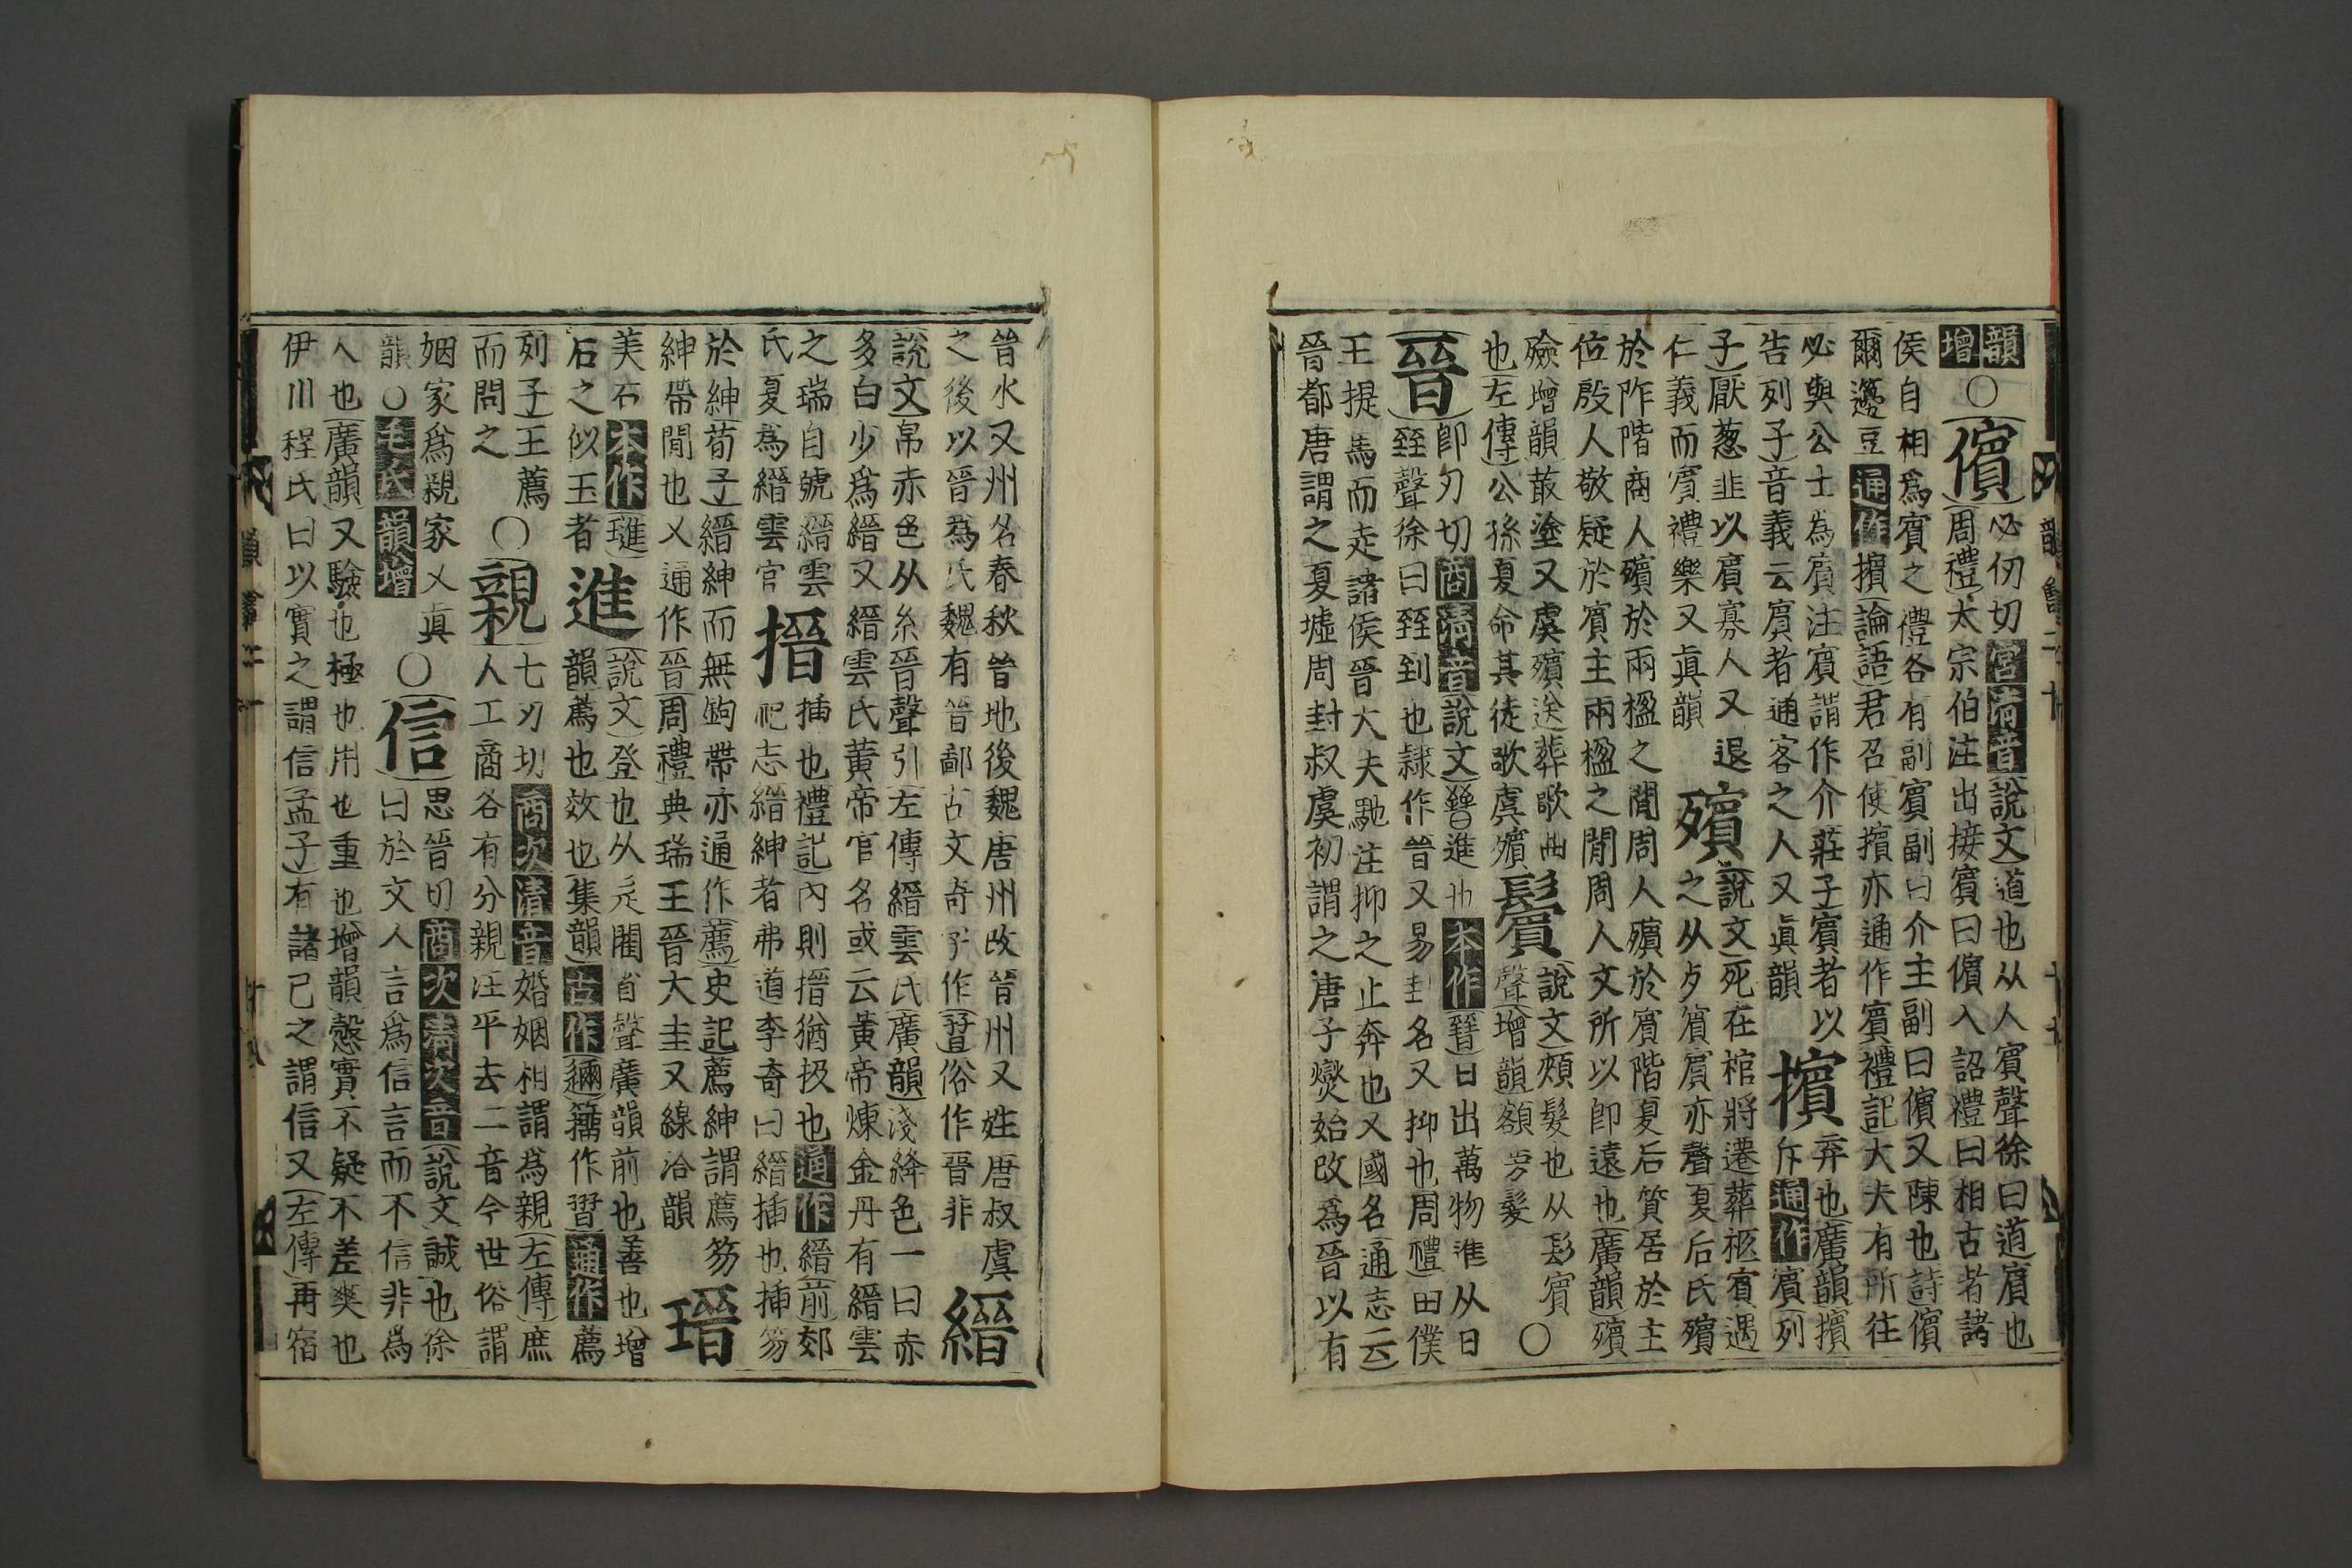 韻
增○儐必仞切宮淸音說文道也从人賓聲徐曰道賓也
周禮大宗伯注出接賓曰儐入詔禮曰相古者諸
侯自相爲賓之禮各有副賓副曰介主副曰儐又陳也詩儐
爾籩豆通作擯論語君召使擯亦通作賓禮記大夫有所往
必與公士為賓注賓謂作介莊子賓者以
告列子音義云賓者通客之人又眞韻
擯弃也廣韻擯
斥通作賓列
子厭葱韭以賓寡人又退
仁義而賓禮樂又眞韻
殯說文死在棺將遷葬柩賓遇
之从歺賓賓亦聲夏后氏殯
於阼階商人殯於兩楹之間周人殯於賓階夏后賓居於主
位殷人敬疑於賓主兩楹之間周人文所以卽遠也廣韻殯
殮增韻菆塗又虞殯送葬歌曲
也左傳公孫夏命其徒歌虞殯
鬢說文頰髮也从髟賓
聲增韻額旁髮○
晉卽刃切商淸音說文進也本作晉日出萬物進从日
臸聲徐曰臸到也隷作晉又易卦名又抑也周禮田僕
王提馬而走諸侯晉大夫馳注抑之止奔也又國名通志云
晉都唐謂之夏墟周封叔虞初謂之唐子爕始改爲晉以有
晉水又州名春秋晉地後魏唐州改晉州又姓唐叔虞
之後以晉為氏魏有晉鄙古文奇字作晉俗作晋非
縉
說文帛赤色从糸晉聲引左傳縉雲氏廣韻淺絳色一曰赤
多白少爲縉又縉雲氏黃帝官名或云黃帝煉金丹有縉雲
之瑞自號縉雲
氏夏為縉雲官
搢插也禮記內則搢猶扱也通作縉前郊
祀志縉紳者弗道李奇曰縉插也插笏
於紳荀子縉紳而無鉤帶亦通作薦史記薦紳謂薦笏
紳帶閒也又通作晉周禮典瑞王晉大圭又線洽韻
瑨
美石本作璡
石之似玉者
進說文登也从辵閵省聲廣韻前也善也增
韻薦也效也集韻古作邇籀作㬜通作薦
列子王薦
而問之○
親七刃切商次淸音婚姻相謂為親左傳庶
人工商各有分親注平去二音今世俗謂
姻家爲親家又眞
韻○毛氏韻增○
信思晉切商次淸次音說文誠也徐
曰於文人言爲信言而不信非為
人也廣韻又驗也極也用也重也增韻慤實不疑不差爽也
伊川程氏曰以實之謂信孟子有諸己之謂信又左傳再宿